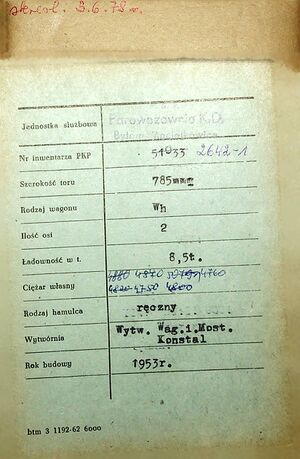 skreśl. 3.6.78 r.
Parowozownia K.D.
Jednostka służbowa
Nr inwentarza PKP 51033 2642-1
Szerokość toru 785mm
Rodzaj wagonu Wh
Ilość osi 2
Ładowność w t. 8,5t.
4880 4870 4760
Ciężar własny 4820 4750 4800
Rodzaj hamulca ręczny
Wytwórnia Wytw. Wag.i.Most.
Konstal
Rok budowy 1953r.
btm 3 1192-62 6000